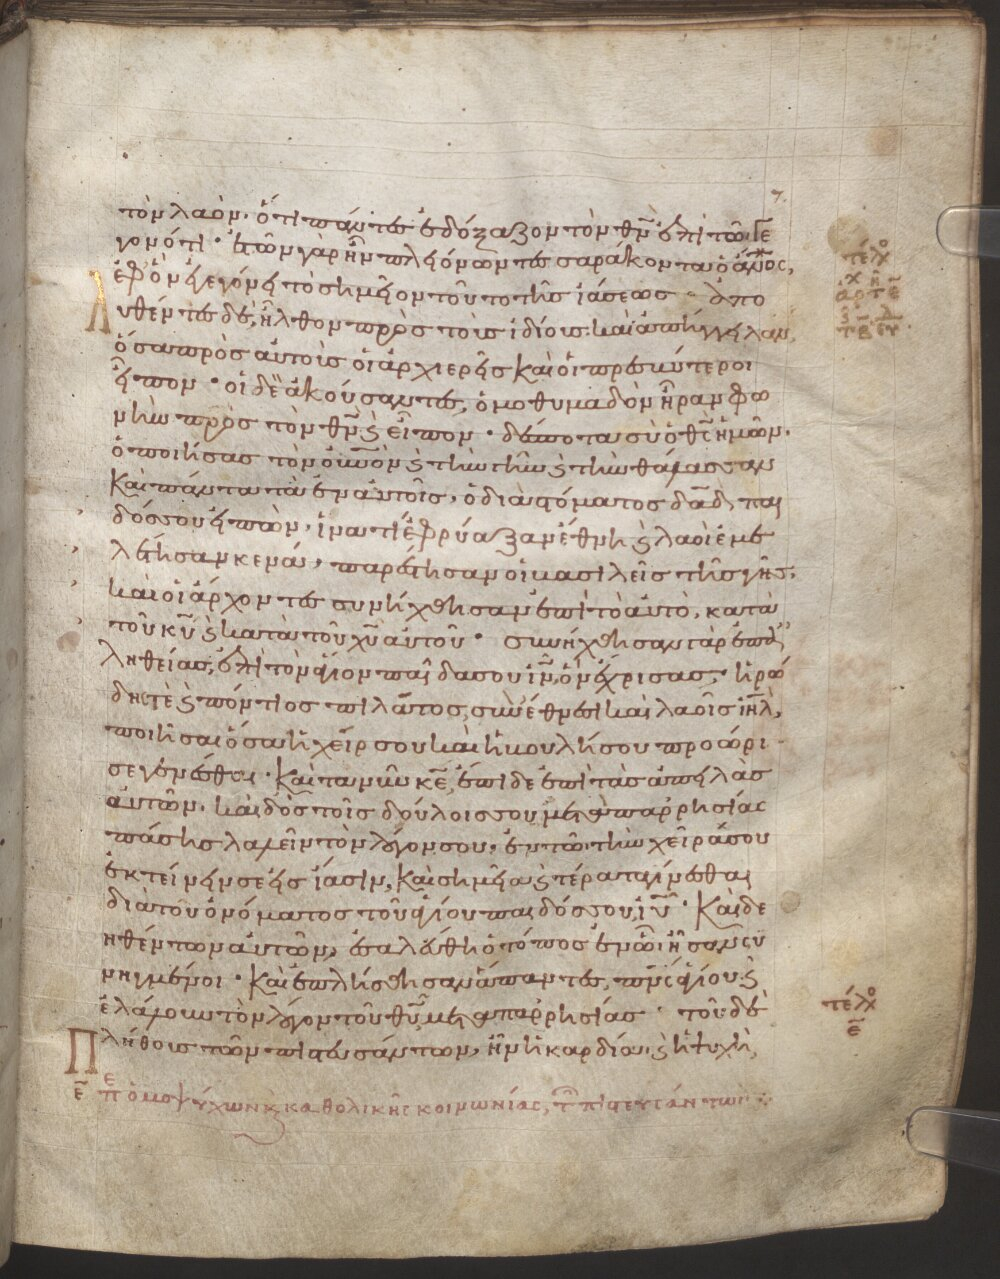 τὸν λαὸν, ὅτι πάντες ἐδόξαζον τὸν θν̄ ἐπὶ τῶ γε
γονότι · ἐτῶν γὰρ ἦν πλειόνων τεσσαράκοντα ὁ ἄνο̄ς,
ἐφ' ὃν ἐγεγόνει τὸ σημεῖον τοῦτο τῆς ἰάσεως · Ἀπο
λυθέντες δὲ, ἦλθον πρὸς τοὺς ἰδίους, καὶ ἀπήγγειλαν
ὅσα πρὸς αὐτοὺς οἱ ἀρχιερεῖς καὶ οἱ πρεσβύτεροι
εἶπον · οἱ δὲ ἀκούσαντες, ὁμοθυμαδὸν ἦραν φω
νὴν πρὸς τὸν θν̄ ϗ εἶπον · δέσποτα σὺ ὁ θς̄ ἡμῶν ·
ὁ ποιήσας τὸν οὐν̄ον ϗ τὴν γῆν ϗ τὴν θάλασσαν
καὶ πάντα τὰ ἐν αὐτοῖς, ὁ διὰ στόματος δᾱδ παι
δός σου εἰπὼν, ἱνατί ἐφρύαξαν ἔθνη ϗ λαοὶ ἐμε
λέτησαν κενά, παρέστησαν οἱ βασιλεῖς τῆς γῆς,
καὶ οἱ ἄρχοντες συνήχθησαν ἐπὶ τὸ αὐτὸ, κατὰ
τοῦ κῡ ϗ κατὰ τοῦ χῡ αὐτοῦ · συνήχθησαν γὰρ ἐπ' ἀ
ληθείας, ἐπὶ τὸν ἅγιον παῖδα σου ιν̄, ὃν ἔχρισας, ἡρώ
δης τὲ ϗ πόντιος πιλᾶτος, σὺν ἔθνεσι καὶ λαοῖς ιη̄λ,
ποιῆσαι ὅσα ἡ χείρ σου καὶ ἡ βουλή σου προώρι
σε γενέσθαι · καὶ τανῦν κε̄, ἔπιδε ἐπὶ τὰς ἀπειλὰς
αὐτῶν, καὶ δὸς τοῖς δούλοις σου μετὰ παρρησίας
πάσης λαλεῖν τὸν λόγον σου, ἐν τῶ τὴν χεῖρά σου
ἐκτείνειν σε εἰς ἴασιν, καὶ σημεῖα ϗ τέρατα γίνεσθαι
διὰ τοῦ ὀνόματος τοῦ ἁγίου παιδός σου ιῡ · καὶ δε
ηθέντων αὐτῶν, ἐσαλεύθη ὁ τόπος ἐν ὧ ἦσαν συ
νηγμένοι · καὶ ἐπλήσθησαν ἅπαντες πν̄ς ἁγίου, ϗ
ἐλάλουν τὸν λόγον τοῦ θῡ μετὰ παρρησίας · τοῦ δὲ
Πλήθους τῶν πιστευσάντων, ἦν ἡ καρδία, ϗ ἡ ψυχὴ,
ε̄ ὁμοψύχων ϗ καθολικῆς κοινωνίας, τ̄ πιστευσάντων
τέλ
τέλ
ε̄